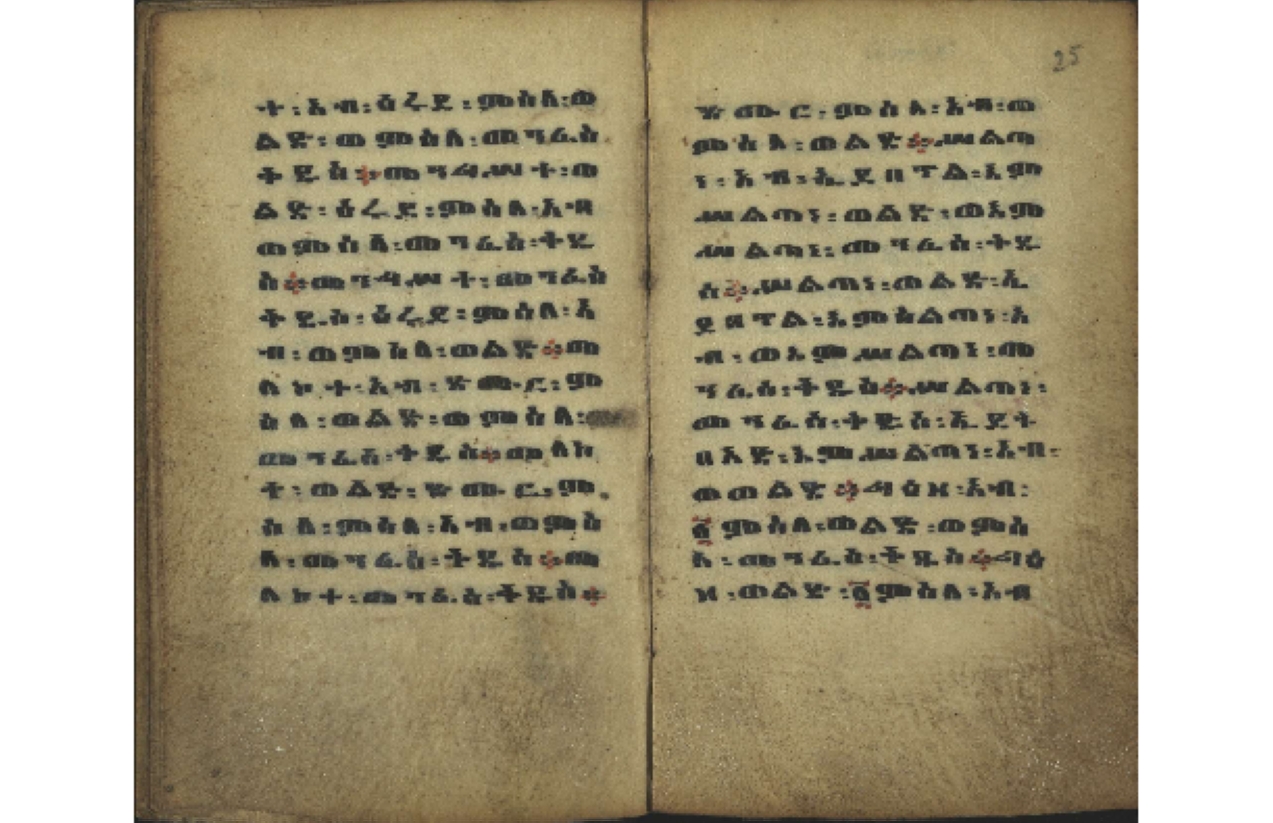 ት፡አብ፡ዕሩይ፡ምስለ፡ወ
ልድ፡ወምስለ፡መንፈስ
ቅዱስ፨መንግሥት፡ወ
ልድ፡ዕሩይ፡ምስለ፡አብ
ወምስለ፡መንፈስ፡ቅዱ
ስ፨መንግሥት፡መንፈስ
ቅዱስ፡ዕሩይ፡ምስለ፡አ
ብ፡ወምስለ፡ወልድ፨መ
ለኮተ፡አብ፡ድሙር፡ም
ስለ፡ወልድ፡ወምስለ፡
መንፈስ፡ቅዱስ፨መለኮ
ተ፡ወልድ፡ድሙር፡ም
ስለ፡ምስለ፡አብ፡ወምስ
ለ፡መንፈስ፡ቅዱስ፨መ
ለኮተ፡መንፈስ፡ቅዱስ፨
25
ድሙር፡ምስለ፡አብ፡ወ
ምስለ፡ወልድ፨ሥልጣ
ነ፡አብ፡ኢይበጥል፡እም
ሥልጣነ፡ወልድ፡ወእም
ሥልጣነ፡መንፈስ፡ቅዱ
ስ፨ሥልጣነ፡ወልድ፡ኢ
ይበጥል፡እምስልጣነ፡አ
ብ፡ወእምሥልጣነ፡መ
ንፈስ፡ቅዱስ፨ሥልጣነ፡
መንፈስ፡ቅዱስ፡ኢይት
በአድ፡እምሥልጣነ፡አብ፡
ወወልድ፨ግዕዘ፡አብ፡
፩ምስለ፡ወልድ፡ወምስ
ለ፡መንፈስ፡ቅዱስ፨ግዕ
ዘ፡ወልድ፡፩ምስለ፡አብ